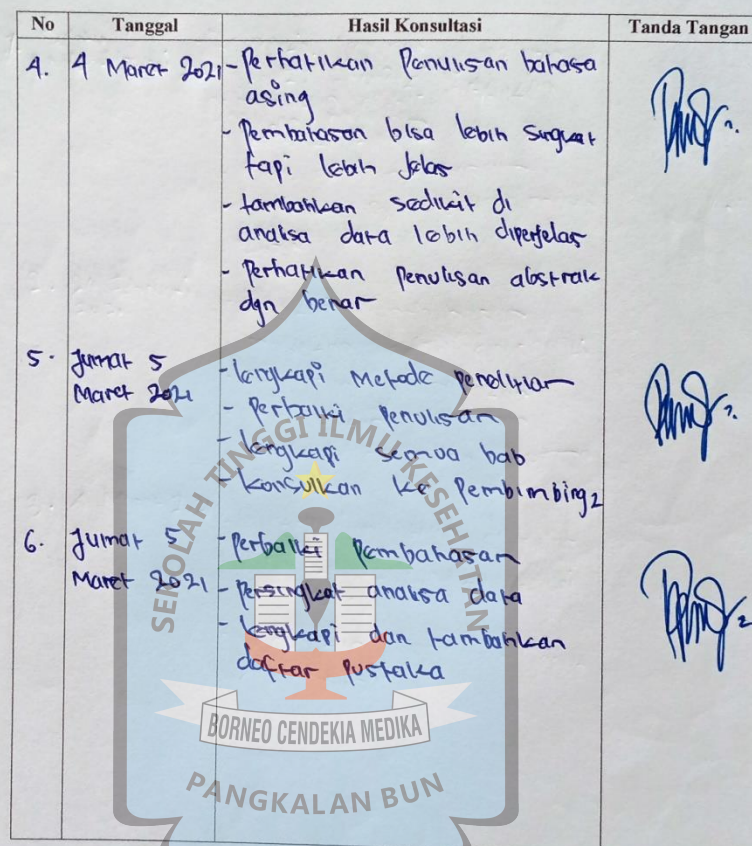 No Tanggal Hasil Konsultasi Tanda Tangan
4. 4 Maret 2021 - Perhatikan Penulisan bahasa
asing
- Pembahasan bisa lebih singkat
tapi lebih jelas
- tambahkan sedikit di
analisa data lebih diperjelas
- Perhatikan Penulisan abstrak
dgn benar
5. Jumat 5 - lengkapi Metode penelitian
Maret 2021 - Perbaiki penulisan
- lengkapi semua bab
- Konsulkan ke Pembimbing 2
6. Jumat 5 - Perbaiki Pembahasan
Maret 2021 - Persingkat analisa data
- lengkapi dan tambahkan
daftar pustaka
SEKOLAH TINGGI ILMU KESEHATAN
BORNEO CENDEKIA MEDIKA
PANGKALAN BUN